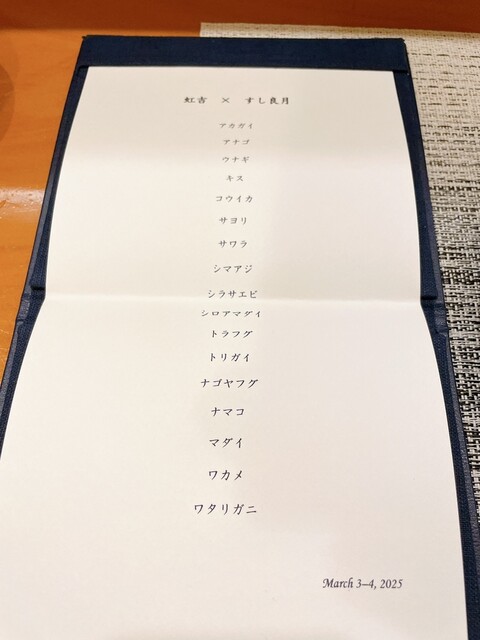 虹吉 × すし良月
アカガイ
アナゴ
ウナギ
キス
コウイカ
サヨリ
サワラ
シマアジ
シラサエビ
シロアマダイ
トラフグ
トリガイ
ナゴヤフグ
ナマコ
マダイ
ワカメ
ワタリガニ
March 3–4, 2025